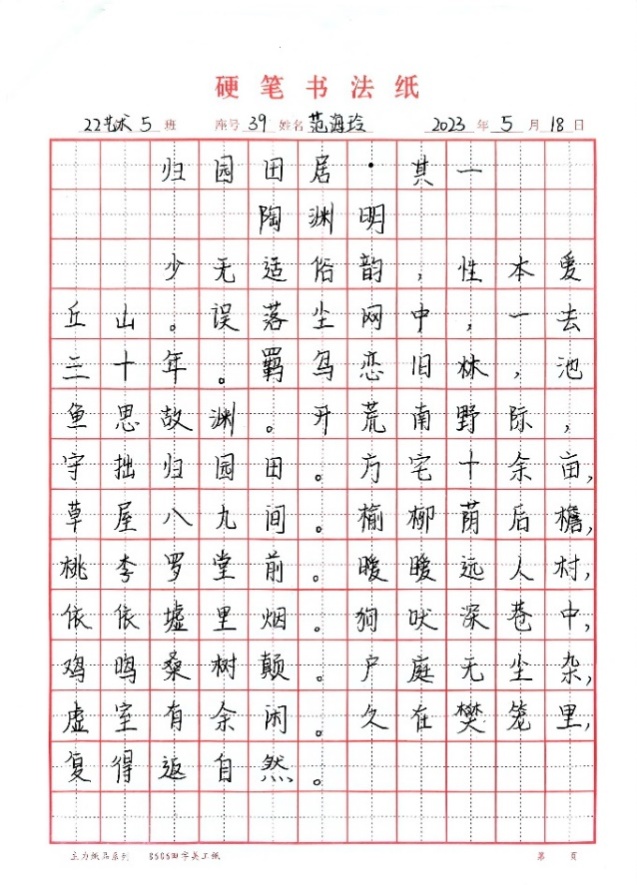 硬笔书法纸
22艺术5班 座号39 姓名范海玲 2023年5月18日
归园田居·其一
陶渊明
少无适俗韵,性本爱
丘山。误落尘网中,一去
三十年。羁鸟恋旧林,池
鱼思故渊。开荒南野际,
守拙归园田。方宅十余亩,
草屋八九间。榆柳荫后檐,
桃李罗堂前。暧暧远人村,
依依墟里烟。狗吠深巷中,
鸡鸣桑树颠。户庭无尘杂,
虚室有余闲。久在樊笼里,
复得返自然。
主力纸品系列 8505田字美工纸 第 页